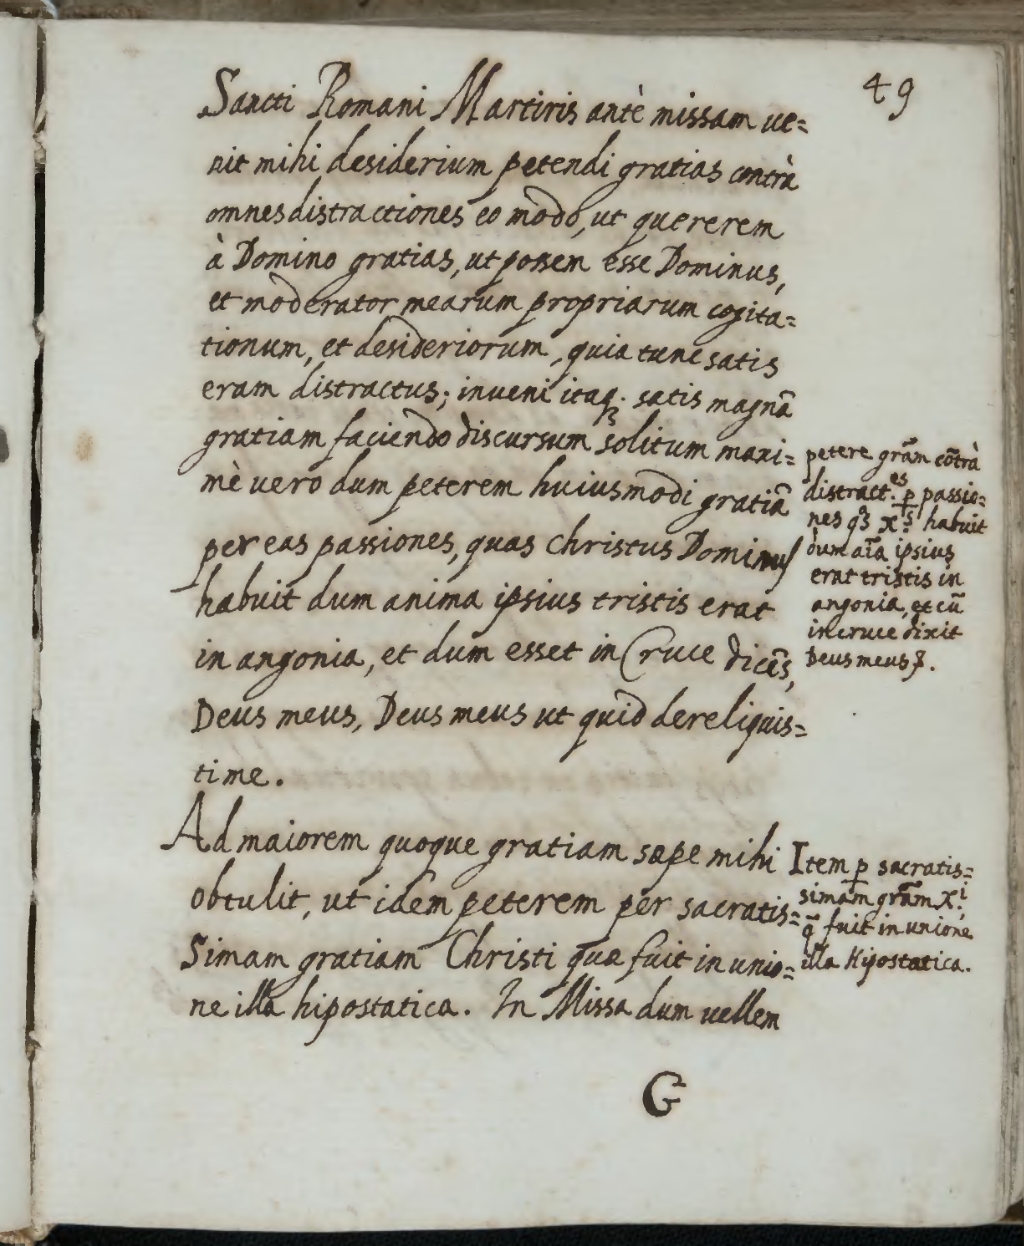 49
Sancti Romani Martiris antè missam ue=
nit mihi desiderium petendi gratias contrà
omnes distractiones eo modo, ut quererem
à Domino gratias, ut possem esse Dominus,
et moderator mearum propriarum cogita=
tionum, et desideriorum, quia tunc satis
eram distractus; inueni itaq. satis magnā
gratiam faciendo discursum solitum maxi=
mè uero dum peterem huiusmodi gratiā
per eas passiones, quas Christus Dominus
habuit dum anima ipsius tristis erat
in angonia, et dum esset in Cruce dicēs,
Deus meus, Deus meus ut quid dereliquis=
ti me.
petere grām cōtrà
distract.es p passio=
nes qs xs habuit
dum aīa ipsius
erat tristis in
angonia, et cū
in cruce dixit
Deus meus
Ad maiorem quoque gratiam sæpe mihi
obtulit, ut idem peterem per sacratis=
Simam gratiam Christi quæ fuit in unio=
ne illa hipostatica. In Missa dum uellem
Item p sacratis=
simam grām xi,
q̄ fuit in unione
illa Hipostatica.
G